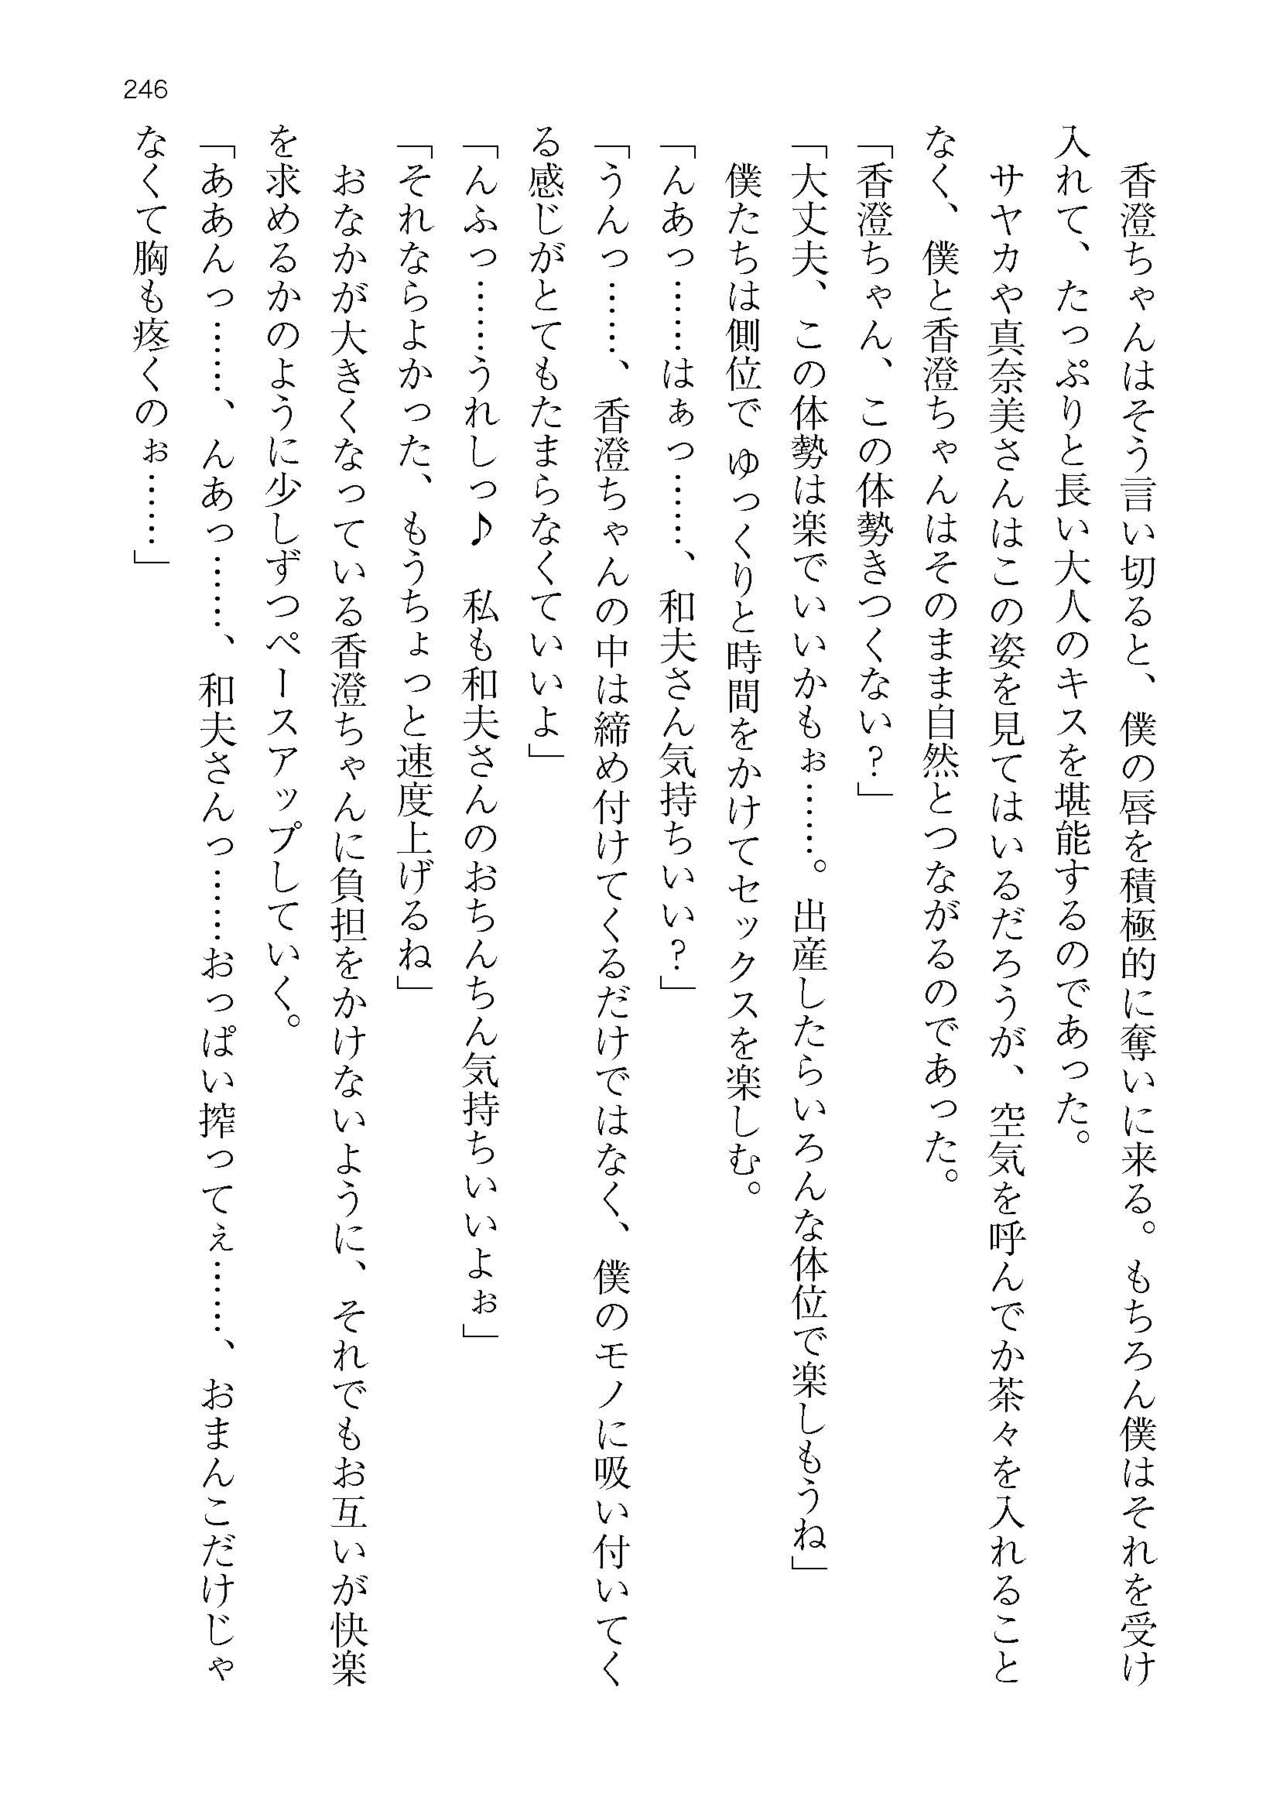 246
香澄ちゃんはそう言い切ると、僕の唇を積極的に奪いに来る。もちろん僕はそれを受け
入れて、たっぷりと長い大人のキスを堪能するのであった。
サヤカや真奈美さんはこの姿を見てはいるだろうが、空気を呼んでか茶々を入れること
なく、僕と香澄ちゃんはそのまま自然とつながるのであった。
「香澄ちゃん、この体勢きつくない?」
「大丈夫、この体勢は楽でいいかもぉ……。出産したらいろんな体位で楽しもうね」
僕たちは側位で ゆっくりと時間をかけてセックスを楽しむ。
「んあっ……はぁっ……、和夫さん気持ちいい?」
「うんっ……、香澄ちゃんの中は締め付けてくるだけではなく、僕のモノに吸い付いてく
る感じがとてもたまらなくていいよ」
「んふっ……うれしっ♪　私も和夫さんのおちんちん気持ちいいよぉ」
「それならよかった、もうちょっと速度上げるね」
おなかが大きくなっている香澄ちゃんに負担をかけないように、それでもお互いが快楽
を求めるかのように少しずつペースアップしていく。
「ああんっ……、んあっ……、和夫さんっ……おっぱい搾ってぇ……、おまんこだけじゃ
なくて胸も疼くのぉ……」